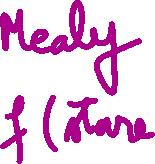 Mealy
f(stare